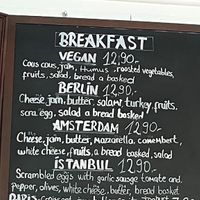 BREAKFAST
VEGAN 12,90.-
Cous cous, jam, Humus, roasted vegetables,
fruits, salad, bread a basked
BERLİN 12,90.-
Cheese, jam, butter, salami, turkey, fruits,
scra. egg, salad a bread basked
AMSTERDAM 12,90.-
Cheese, jam, butter, mazzarella, camembert,
white cheese, fruits, a bread basked, salad
İSTANBUL 12,90.-
Scrambled eggs with garlic sausage tomato and
pepper, olives, white cheese, butter, bread basket
PARIS